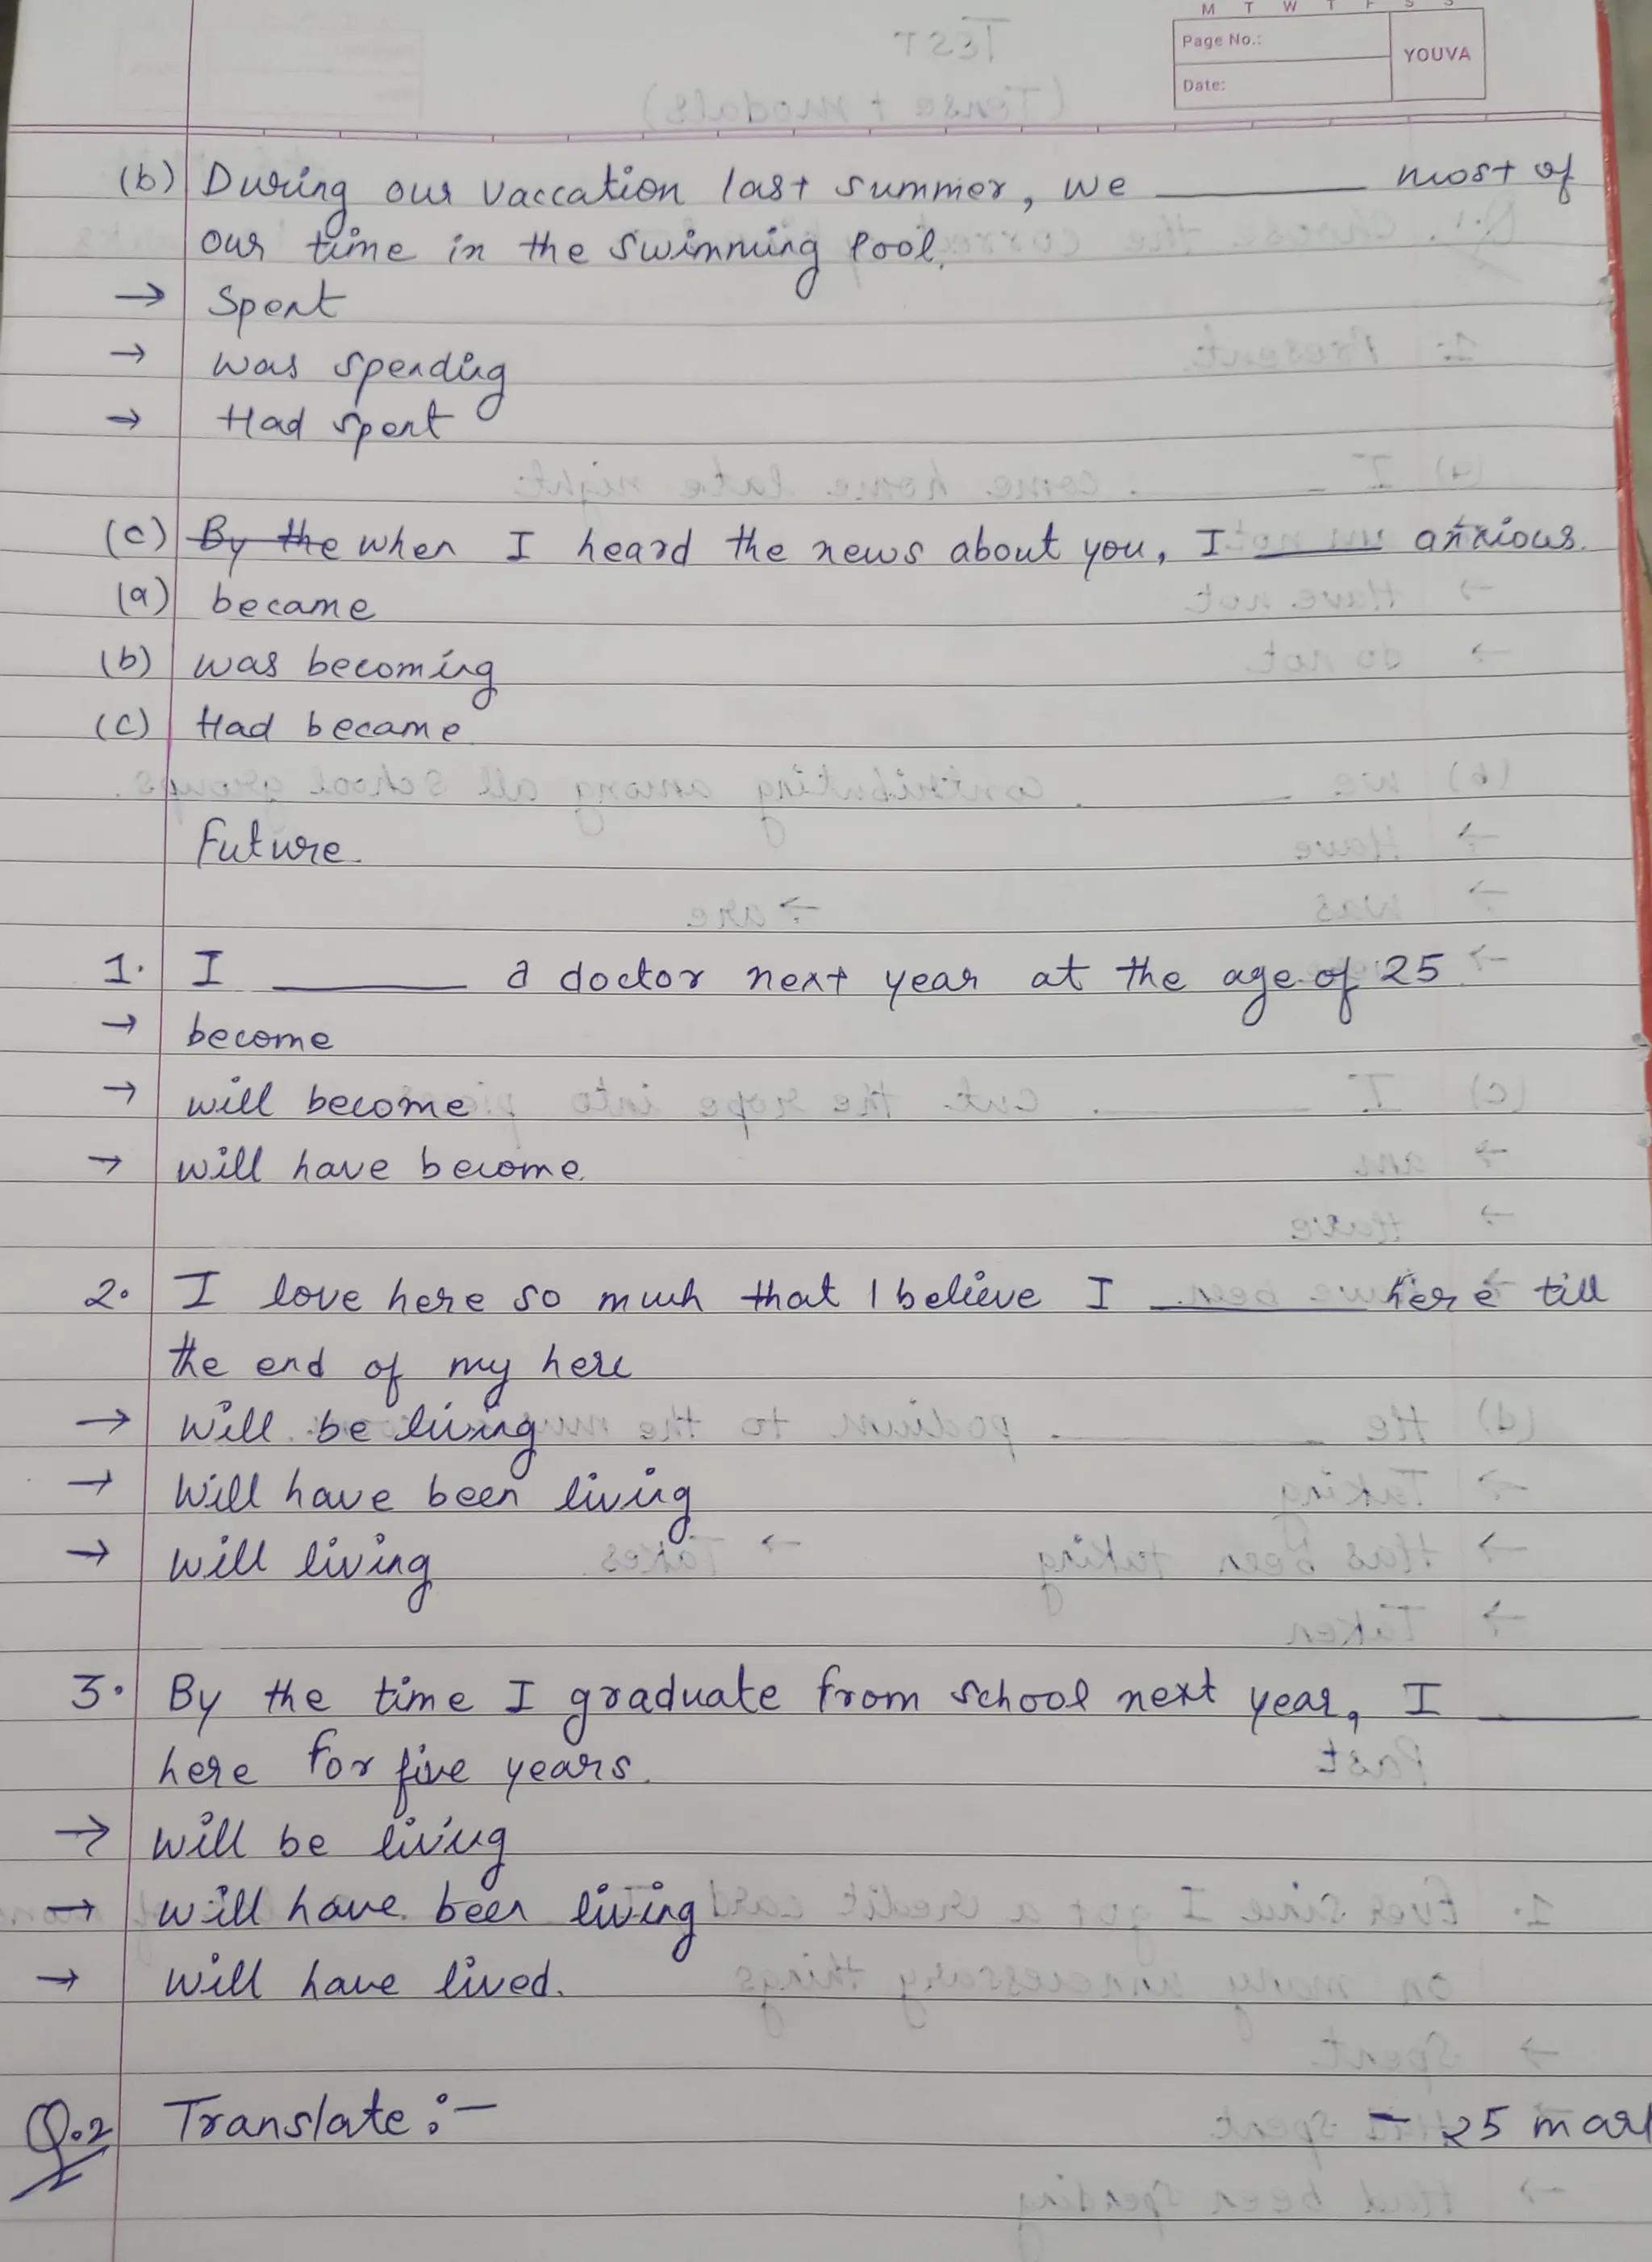 M T W T F S S
Page No.:
YOUVA
Date:
(b) During our vaccation last summer, we ______ most of
our time in the swimming Pool.
→ Spent
→ was spending
→ Had spent
(c) By the when I heard the news about you, I ______ anxious.
(a) became
(b) was becoming
(c) Had became
Future.
1. I ______ a doctor next year at the age of 25
→ become
→ will become
→ will have become.
2. I love here so much that I believe I ______ here till
the end of my here
→ Will be living
→ Will have been living
→ will living
3. By the time I graduate from school next year, I ______
here for five years.
→ will be living
→ will have been living
→ will have lived.
Q.2 Translate :- - 25 mar